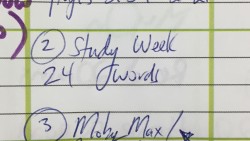 ② Study Week
24 words
③ Moby Max/